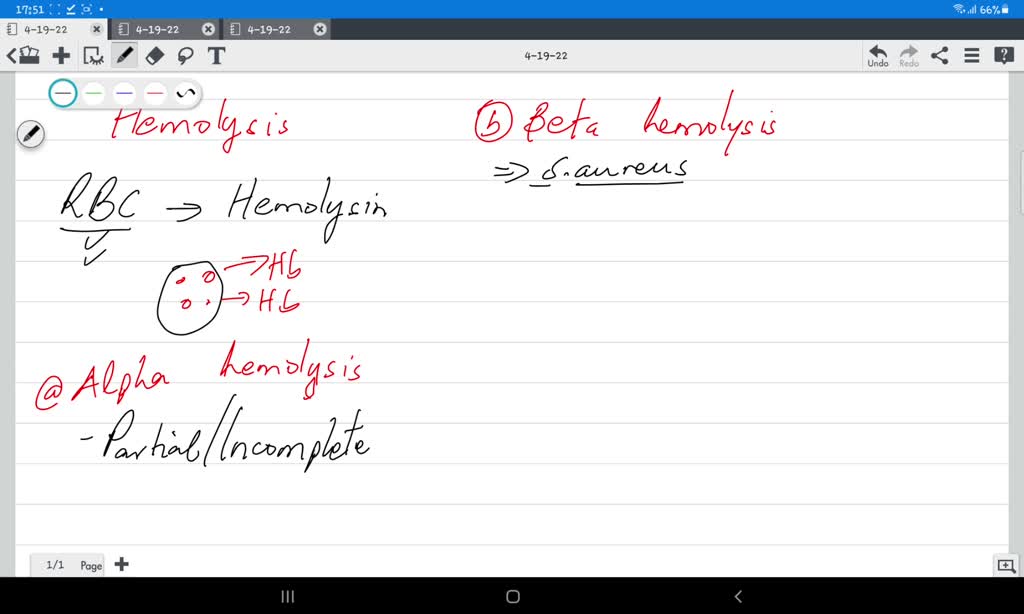 17:51
66%
4-19-22
4-19-22
4-19-22
T
4-19-22
Undo
Redo
Hemolysis
RBC → Hemolysin
→ Hb
→ Hb
ⓐ Alpha hemolysis
- Partial/Incomplete
ⓑ Beta hemolysis
⇒ S. aureus
1/1 Page